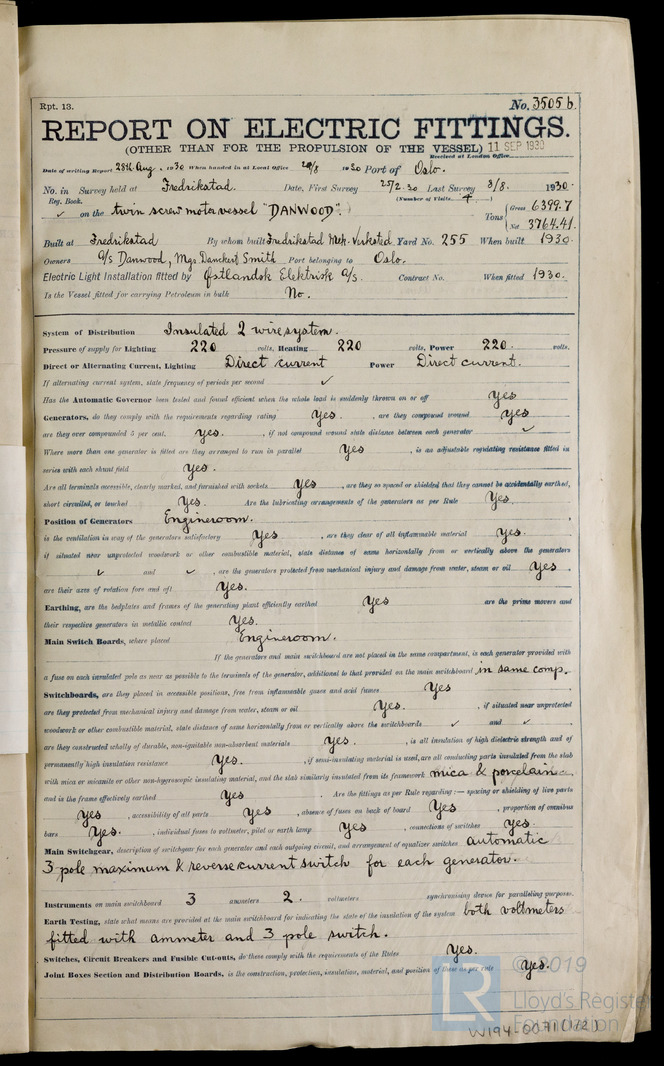 Rpt. 13.
No. 3505 b.
REPORT ON ELECTRIC FITTINGS.
(OTHER THAN FOR THE PROPULSION OF THE VESSEL) 11 SEP 1930
Received at London Office
Date of writing Report 28th Aug. 1930 When handed in at Local Office 1930 Port of Oslo.
No. in Survey held at Fredrikstad. Date, First Survey 25/2.30 Last Survey 3/8. 1930.
Reg. Book. (Number of Visits 4)
✓ on the twin screw motorvessel "DANWOOD". Tons { Gross 6399.7
Net 3764.41.
Built at Fredrikstad By whom built Fredrikstad Mek. Verksted Yard No. 255 When built 1930.
Owners A/S Danwood, Mgs Danckert Smith Port belonging to Oslo.
Electric Light Installation fitted by Østlandsk Elektrisk A/S. Contract No. When fitted 1930.
Is the Vessel fitted for carrying Petroleum in bulk No.
System of Distribution Insulated 2 wire system.
Pressure of supply for Lighting 220 volts, Heating 220 volts, Power 220. volts.
Direct or Alternating Current, Lighting Direct current Power Direct current.
If alternating current system, state frequency of periods per second ✓
Has the Automatic Governor been tested and found efficient when the whole load is suddenly thrown on or off Yes
Generators, do they comply with the requirements regarding rating Yes. , are they compound wound Yes
are they over compounded 5 per cent. Yes. , if not compound wound state distance between each generator ✓
Where more than one generator is fitted are they arranged to run in parallel Yes , is an adjustable regulating resistance fitted in
series with each shunt field Yes.
Are all terminals accessible, clearly marked, and furnished with sockets Yes , are they so spaced or shielded that they cannot be accidentally earthed,
short circuited, or touched Yes. Are the lubricating arrangements of the generators as per Rule Yes.
Position of Generators Engineroom.
is the ventilation in way of the generators satisfactory Yes , are they clear of all inflammable material Yes.
if situated near unprotected woodwork or other combustible material, state distance of same horizontally from or vertically above the generators
✓ and ✓ , are the generators protected from mechanical injury and damage from water, steam or oil Yes.
are their axes of rotation fore and aft Yes.
Earthing, are the bedplates and frames of the generating plant efficiently earthed Yes are the prime movers and
their respective generators in metallic contact Yes.
Main Switch Boards, where placed Engineroom.
If the generators and main switchboard are not placed in the same compartment, is each generator provided with
a fuse on each insulated pole as near as possible to the terminals of the generator, additional to that provided on the main switchboard in same comp.
Switchboards, are they placed in accessible positions, free from inflammable gases and acid fumes Yes
are they protected from mechanical injury and damage from water, steam or oil Yes. , if situated near unprotected
woodwork or other combustible material, state distance of same horizontally from or vertically above the switchboards ✓ and ✓
are they constructed wholly of durable, non-ignitable non-absorbent materials Yes. , is all insulation of high dielectric strength and of
permanently high insulation resistance Yes. , if semi-insulating material is used, are all conducting parts insulated from the slab
with mica or micanite or other non-hygroscopic insulating material, and the slab similarly insulated from its framework mica & porcelain
and is the frame effectively earthed Yes . Are the fittings as per Rule regarding:— spacing or shielding of live parts
Yes , accessibility of all parts Yes , absence of fuses on back of board Yes , proportion of omnibus
bars Yes. , individual fuses to voltmeter, pilot or earth lamp Yes , connections of switches Yes.
Main Switchgear, description of switchgear for each generator and each outgoing circuit, and arrangement of equalizer switches automatic
3 pole maximum & reverse current switch for each generator.
Instruments on main switchboard 3 ammeters 2. voltmeters synchronising device for paralleling purposes.
Earth Testing, state what means are provided at the main switchboard for indicating the state of the insulation of the system both voltmeters
fitted with ammeter and 3 pole switch.
Switches, Circuit Breakers and Fusible Cut-outs, do these comply with the requirements of the Rules Yes.
Joint Boxes Section and Distribution Boards, is the construction, protection, insulation, material, and position of these as per rule Yes.
© 2019
LR Lloyd's Register
Foundation
W194-0071(1/2)